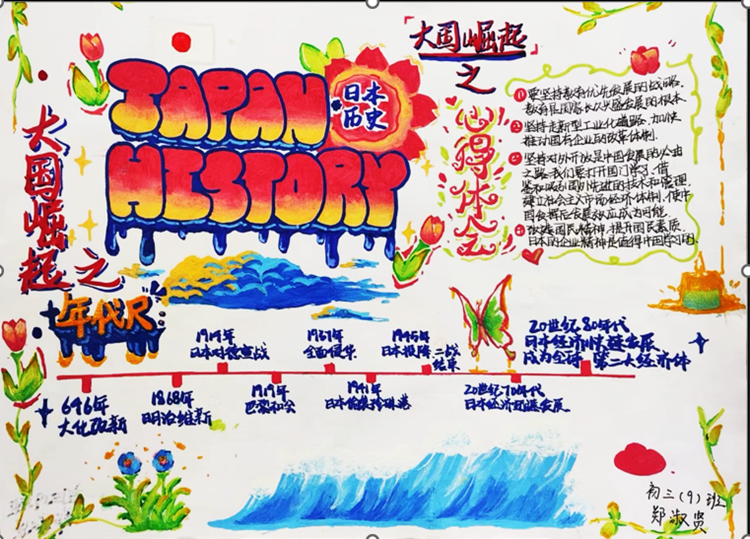 JAPAN
HISTORY
日本
历史
大国崛起之
年代尺
大国崛起
之
心得体会
① 要坚持教育优先发展的战略.
教育是国富长久兴盛发展的根本
② 坚持走新型工业化道路.加快
推动国有企业的改革体制.
③ 坚持对外开放是中国发展的必由
之路.我们要打开国门学习.借
鉴和吸引国外先进的技术和管理.
建立社会主义市场经济体制.使中
国会挥后发效应成为可能.
国民精神.提升国民素质.
日本的企业精神是值得中国学习的
1914年
日本对德宣战
1937年
全面侵华
1945年
日本投降 二战
结束
20世纪80年代
日本经济快速发展
成为全球 第二大经济体
646年
大化改新
1868年
日明治维新
1919年
巴黎和会
1941年
日本偷袭珍珠港
20世纪70年代
日本经济迅速发展
初三(9)班
郑淑贤